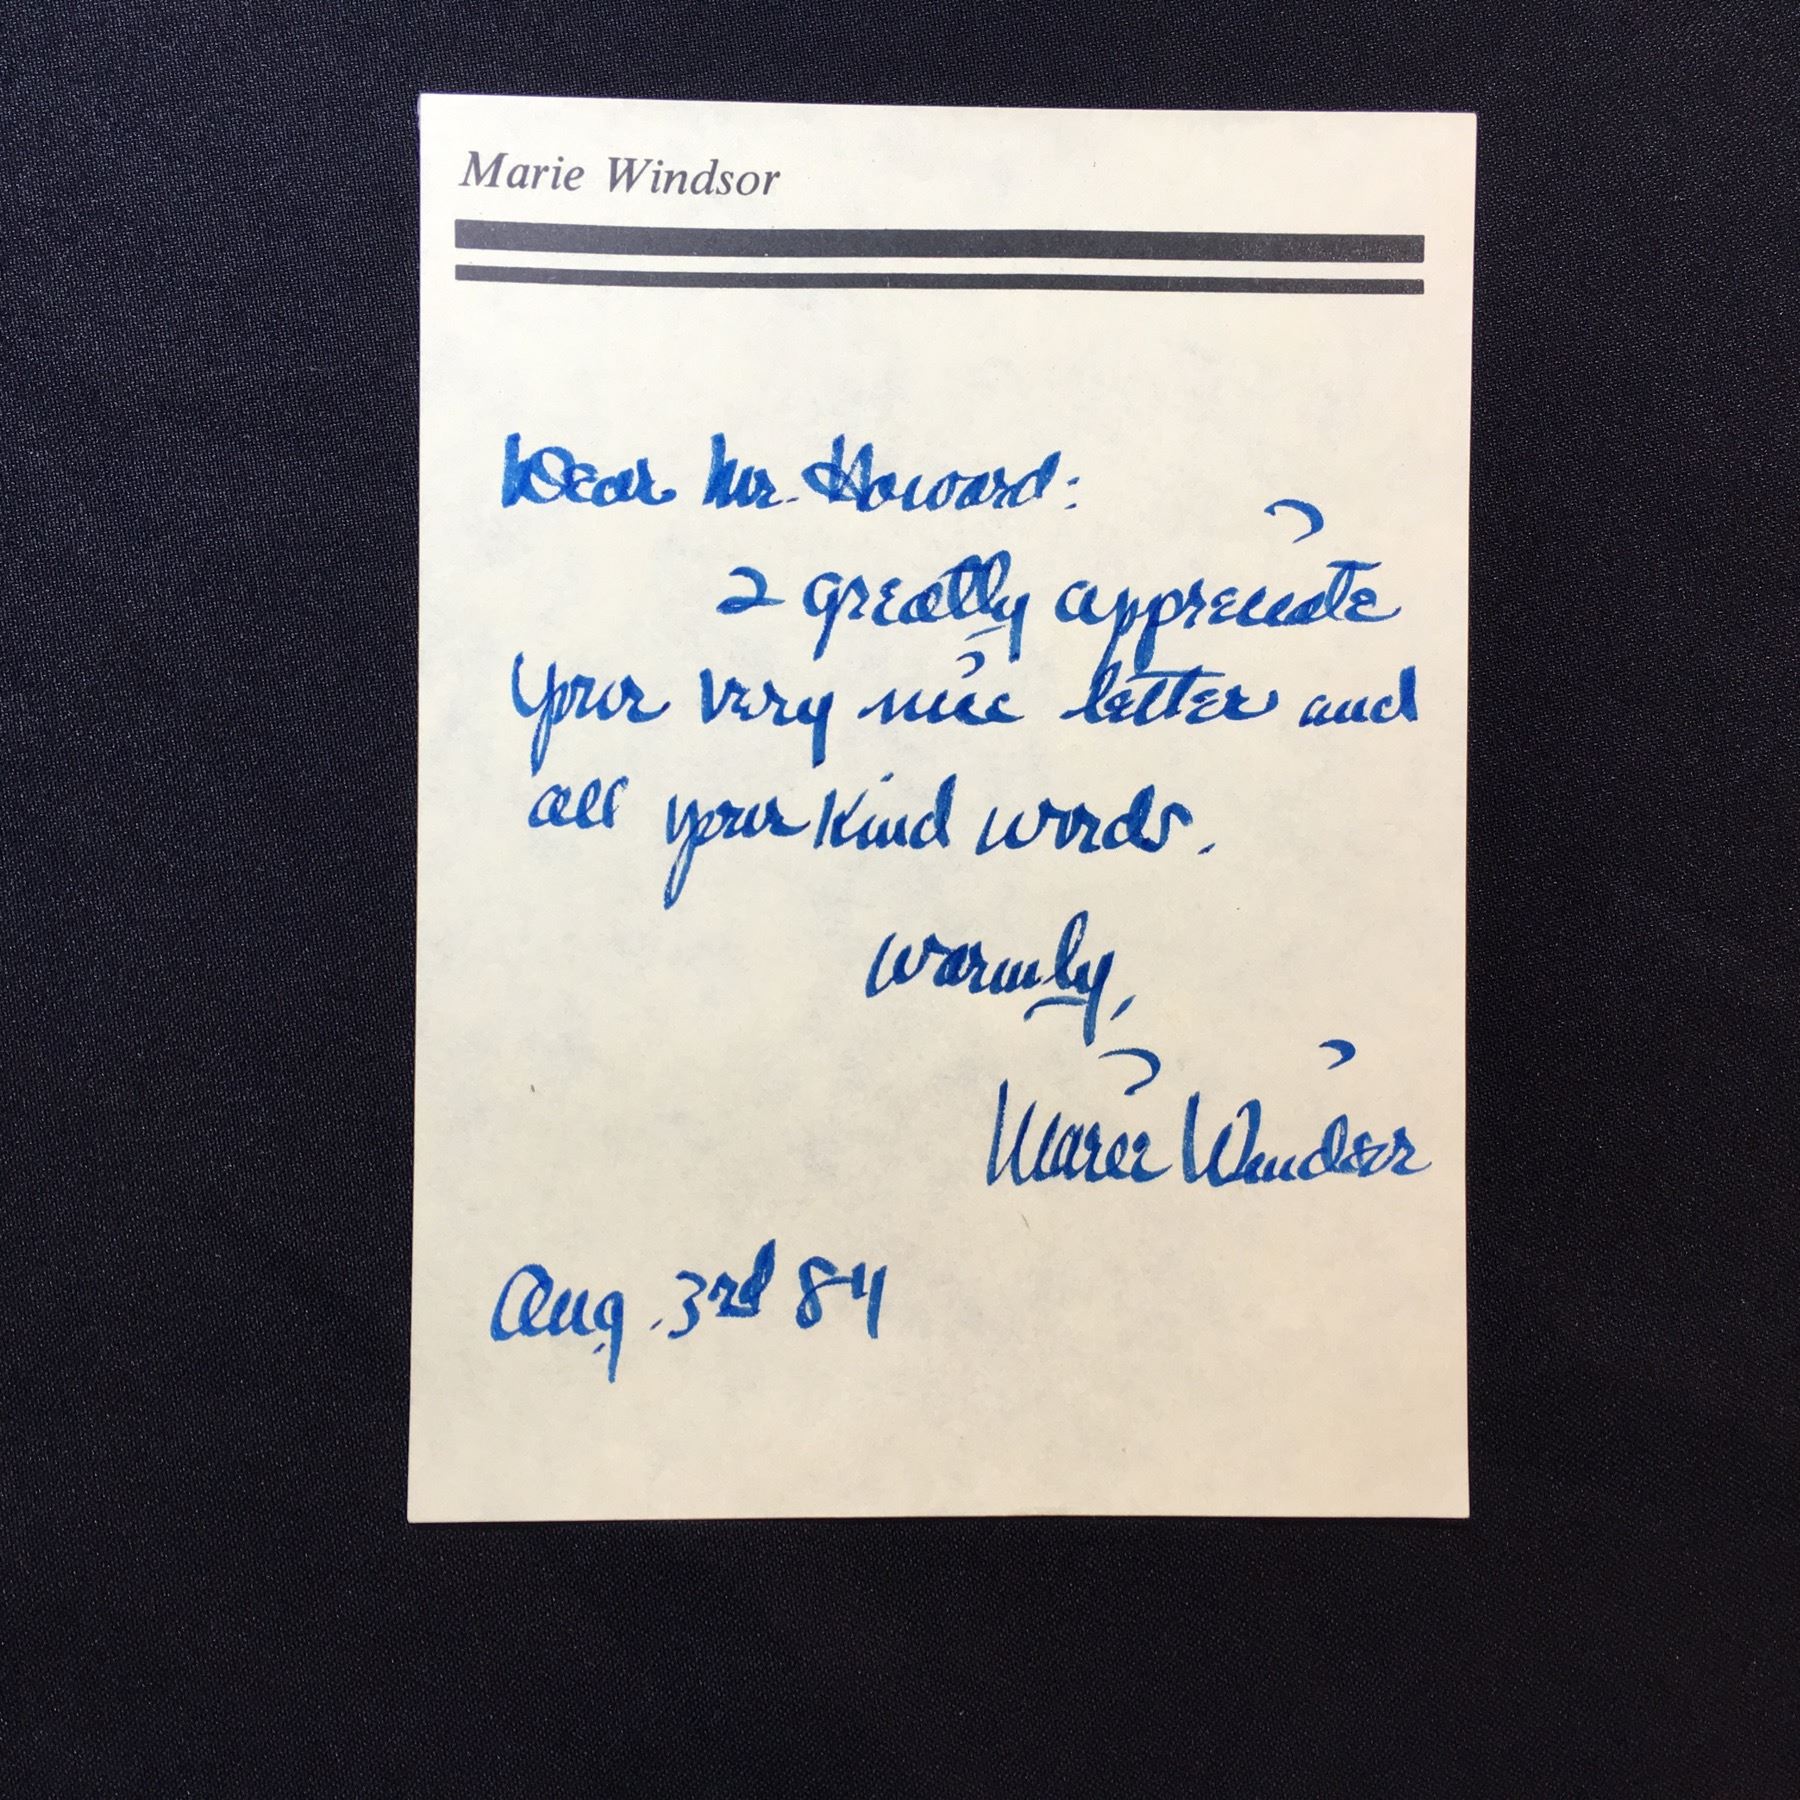 Marie Windsor
Dear Mr. Howard:
I greatly appreciate
your very nice letter and
all your kind words.
Warmly,
Marie Windsor
Aug. 3rd 84